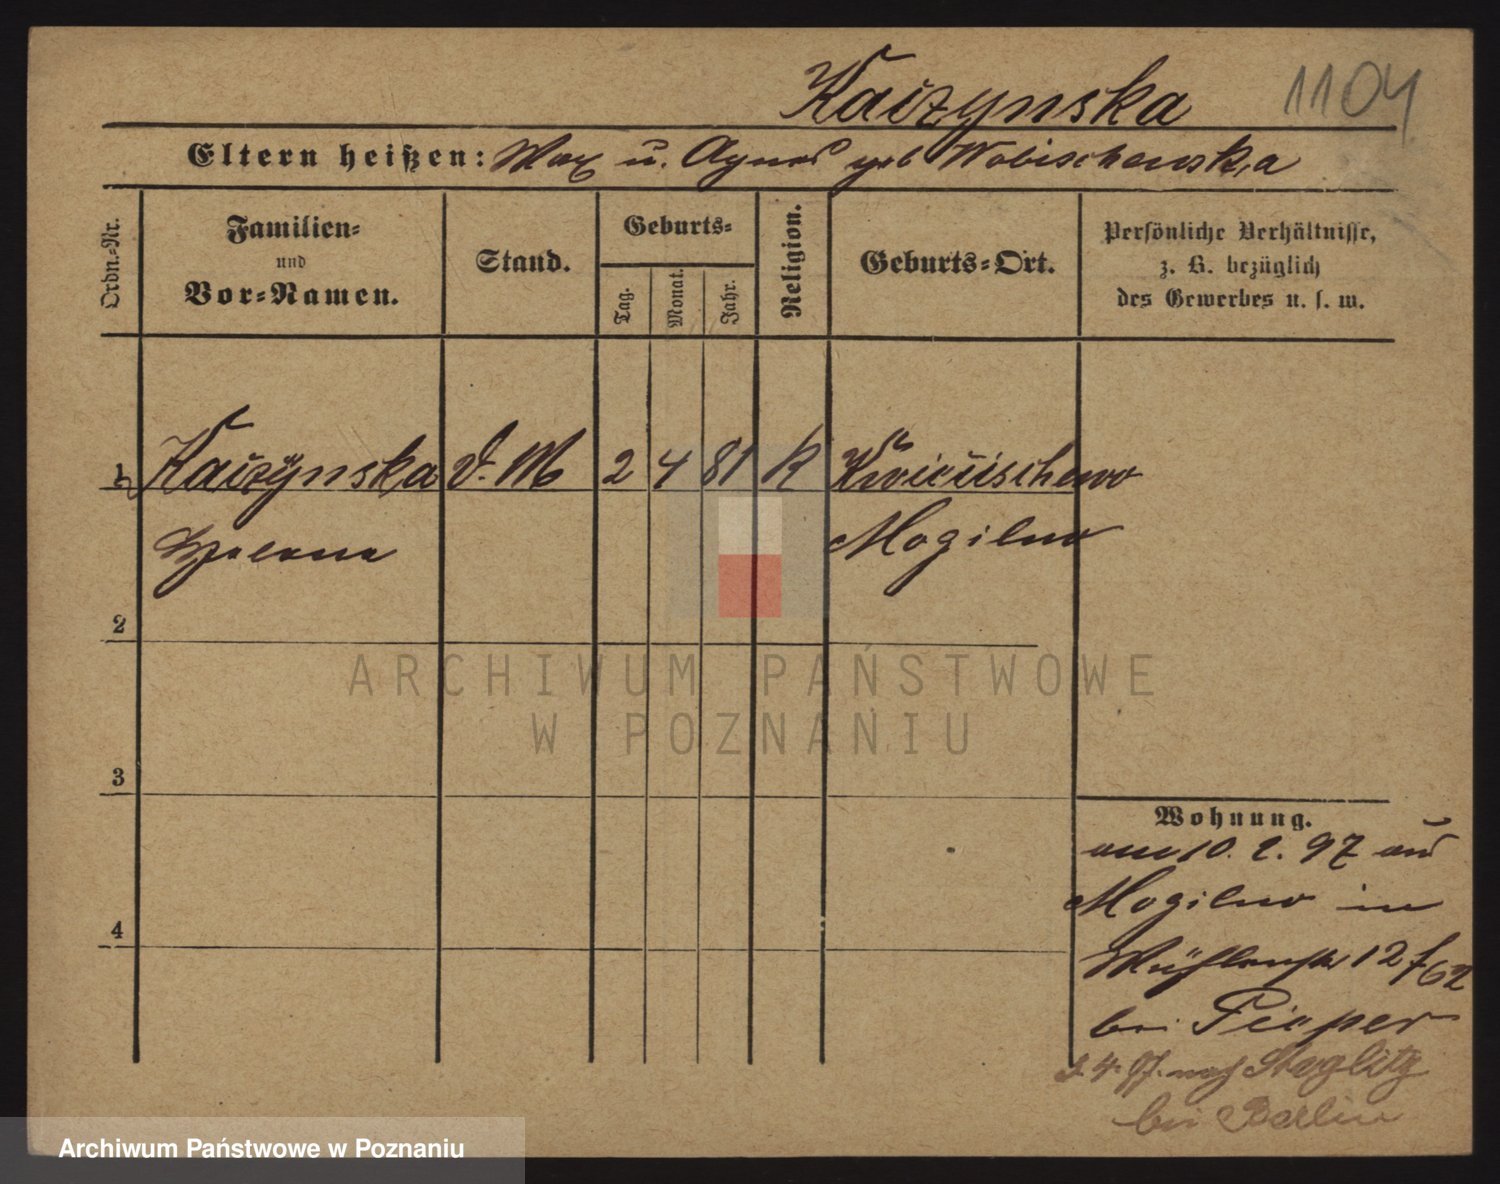 Kaizynska 1104
Eltern heißen: Max u. Agnes geb Wobischewska
Ordn.-Nr.
Familien-
und
Vor-Namen.
Stand.
Geburts-
Tag.
Monat.
Jahr.
Religion.
Geburts-Ort.
Persönliche Verhältnisse,
z. B. bezüglich
des Gewerbes u. s. w.
1 Kaizynska d. M 2 4 81 K
Helena Mogilno
2
ARCHIWUM PAŃSTWOWE
W POZNANIU
3
Wohnung.
am 10. 2. 97 aus
Mogilno in
Mühlenstr 12
4
bei Pieper
4. 97. nach Steglitz
bei Berlin
Archiwum Państwowe w Poznaniu